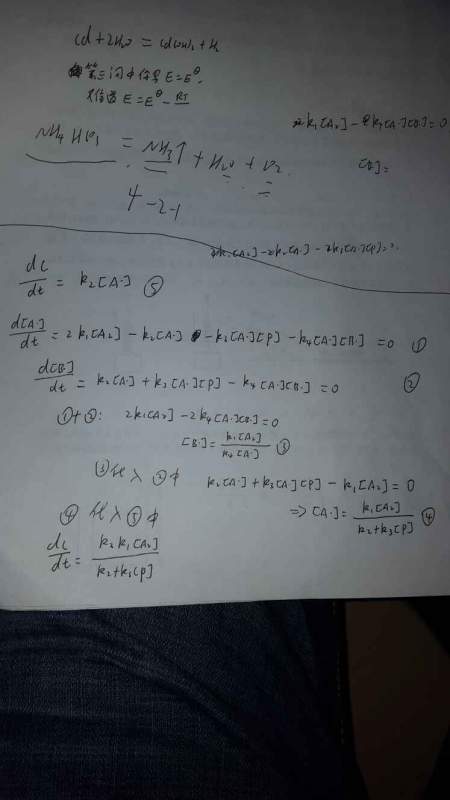 Cd+2H₂O = Cd(OH)₂+H₂
第三问中你写 E=E^θ,
E=E^θ - RT
2k₁[A₂] - 2k₄[A·][B·]=0
NH₄HCO₃ = NH₃↑ + H₂O + CO₂
[B·]=
4-2-1
dc/dt = k₂[A·] ⑤
d[A·]/dt = 2k₁[A₂] - k₂[A·] - k₃[A·][P] - k₄[A·][B·] = 0 ①
d[B·]/dt = k₂[A·] + k₃[A·][P] - k₄[A·][B·] = 0 ②
①+②: 2k₁[A₂] - 2k₄[A·][B·]=0
[B·]= k₁[A₂]/k₄[A·] ③
③代入②中 k₂[A·]+k₃[A·][P] - k₁[A₂] = 0
④代入⑤中 ⇒ [A·]= k₁[A₂]/k₂+k₃[P] ④
dc/dt = k₂k₁[A₂]/k₂+k₃[P]